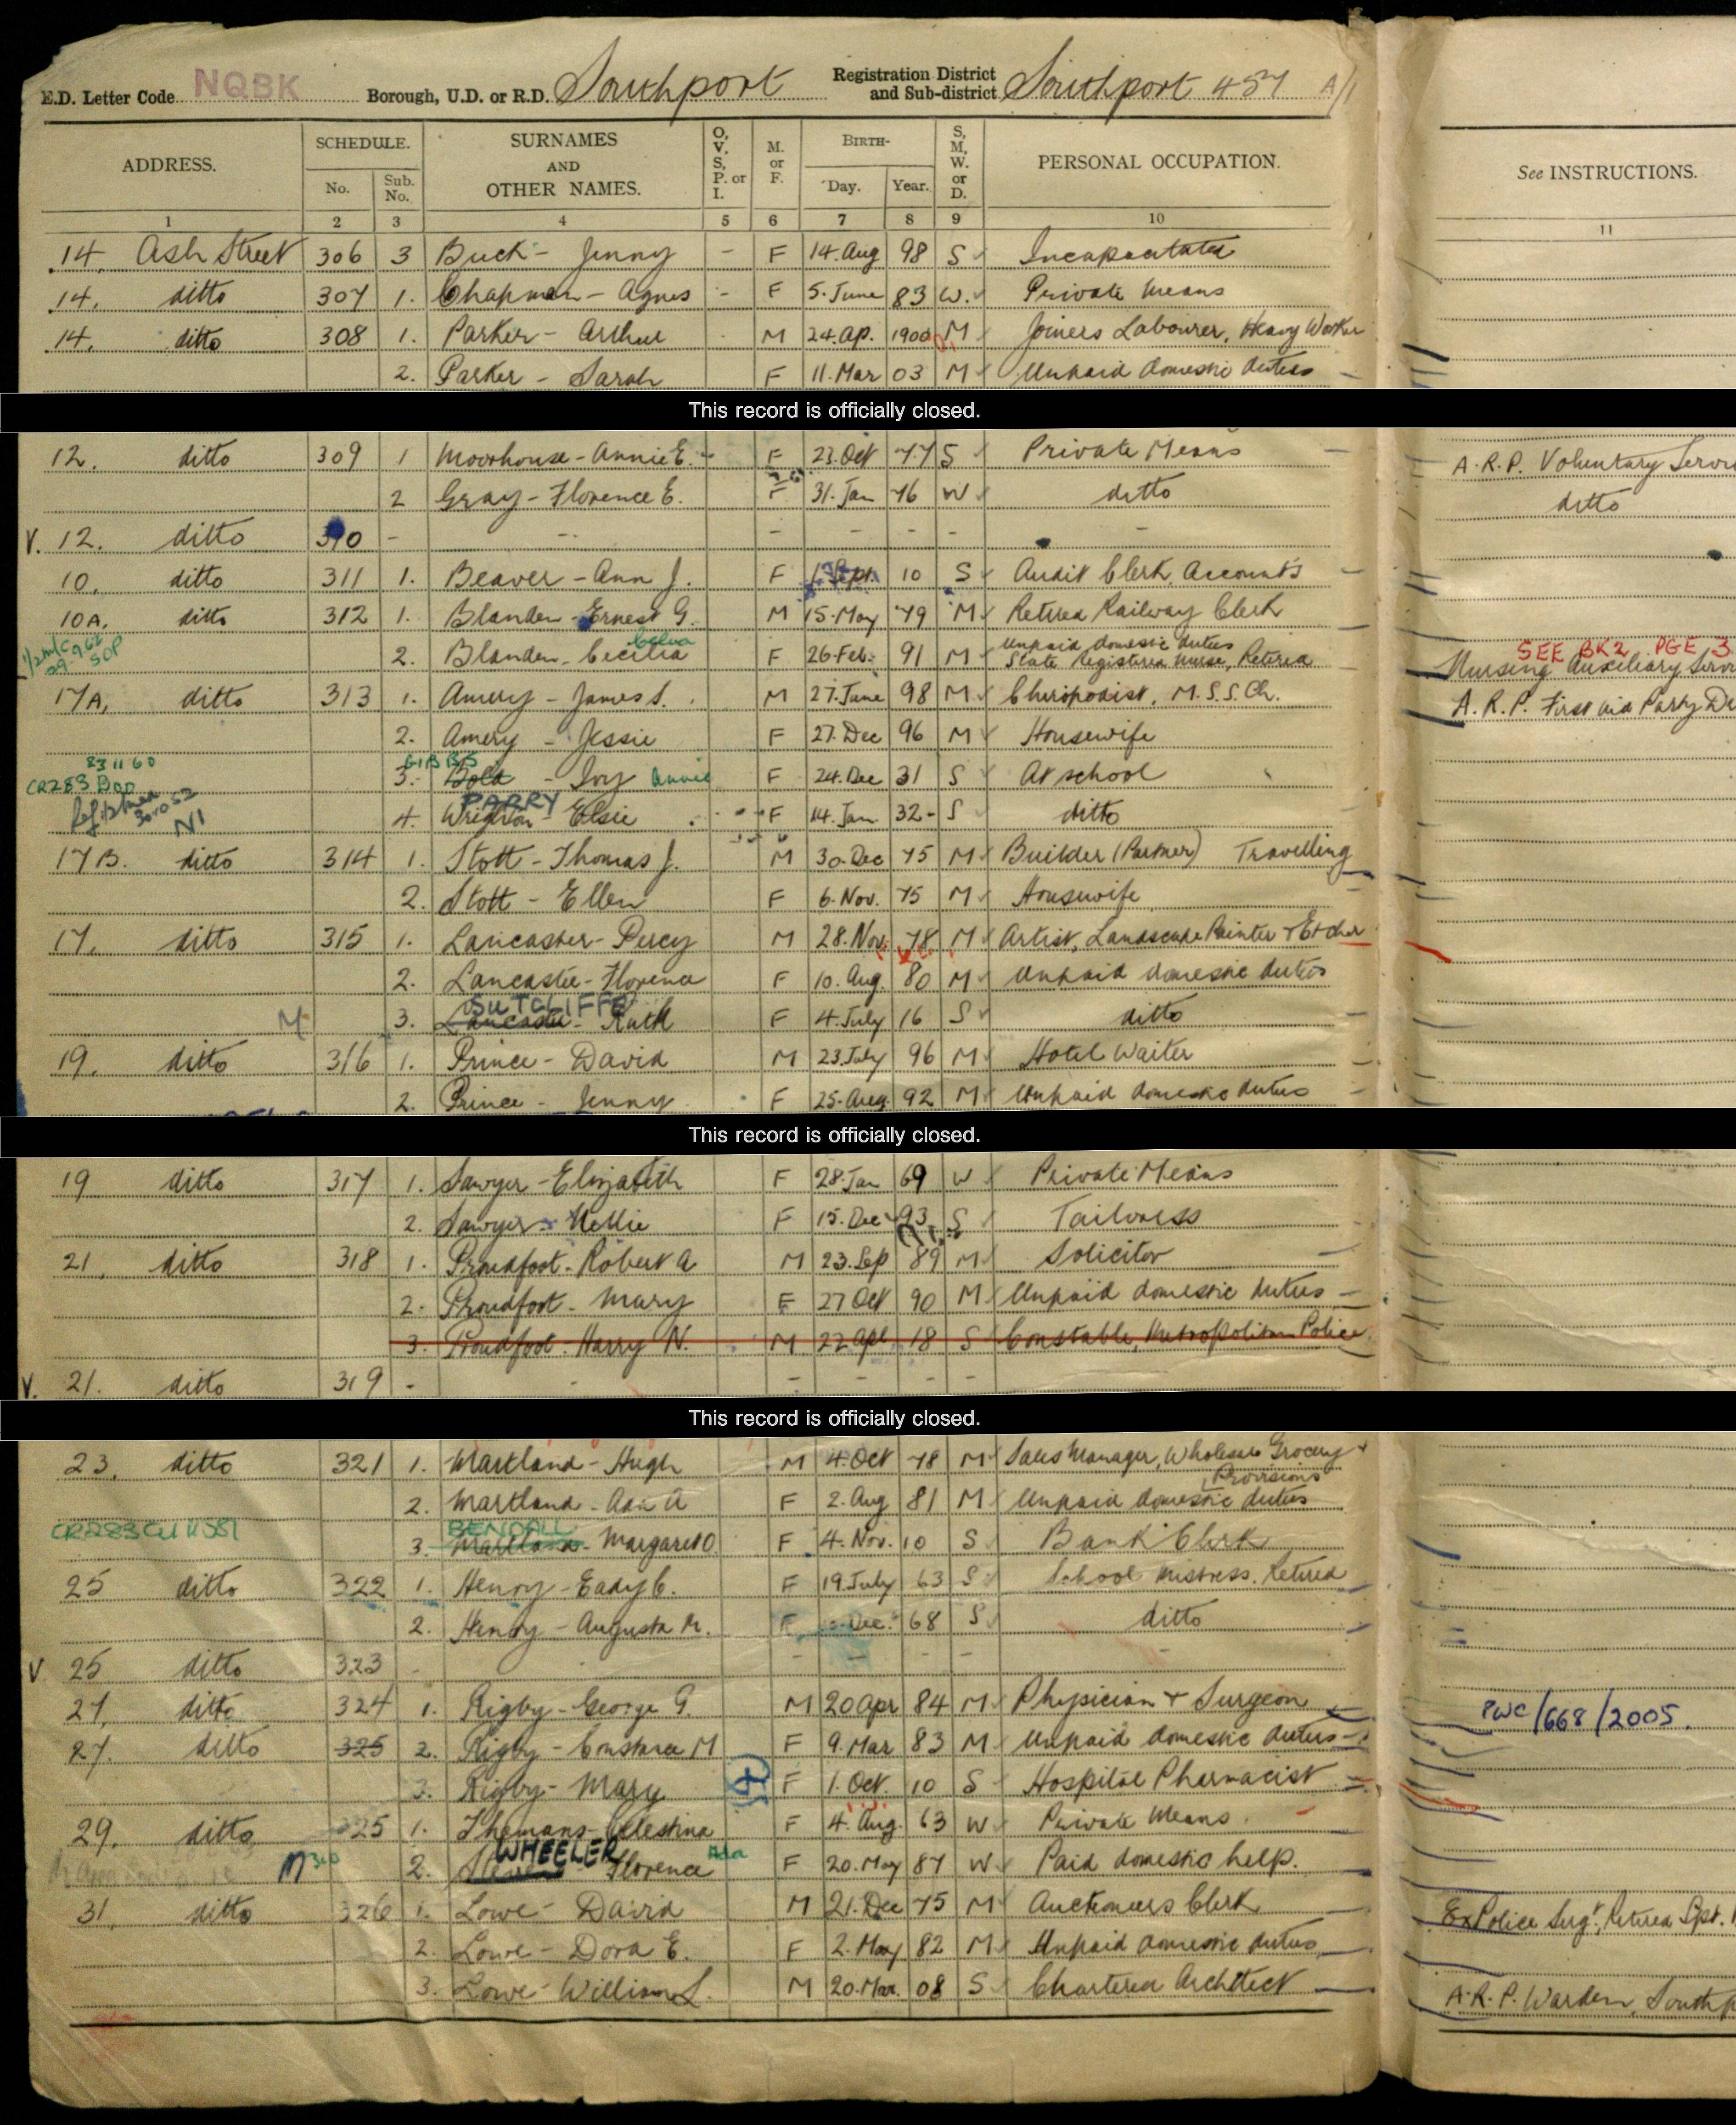 E.D. Letter Code NQBK Borough, U.D. or R.D. Southport Registration District and Sub-district Southport 457 A/1
ADDRESS. SCHEDULE. No. Sub. No. SURNAMES AND OTHER NAMES. O, V, S, P. or I. M. or F. BIRTH- Day. Year. S, M, W. or D. PERSONAL OCCUPATION. See INSTRUCTIONS.
1 2 3 4 5 6 7 8 9 10 11
14. Ash Street 306 3 Buck - Jenny - F 14. Aug 98 S Incapacitated
14. ditto 307 1. Chapman - Agnes - F 5. June 83 W. Private Means
14. ditto 308 1. Parker - Arthur M 24. Ap. 1900 M Joiners Labourer, Heavy Worker
2. Parker - Sarah F 11. Mar 03 M Unpaid domestic duties
This record is officially closed.
12. ditto 309 1 Moorhouse - Annie E. F 23. Oct 77 S Private Means A.R.P. Voluntary
2 Gray - Florence E. F 31. Jan 76 W ditto ditto
V. 12. ditto 310 - - - - - - -
10. ditto 311 1. Beaver - Ann J. F 1 Sept. 10 S Audit Clerk, Accounts
10A. ditto 312 1. Blanden - Ernest G. M 15. May 79 M Retired Railway Clerk
2. Blanden - Cecilia F 26 Feb. 91 M Unpaid domestic duties State Registered Nurse, Retired SEE BK2 PGE 3 Nursing Auxiliary
17A. ditto 313 1. Amery - James S. M 27. June 98 M Chiropodist, M.S.S.Ch. A.R.P. First aid Party
2. Amery - Jessie F 27. Dec 96 M Housewife
83 11 60 GIBBS
CR283 3. Bold - Ivy Annie F 24. Dec 31 S At school
PARRY
NI 4. Elsie F 14. Jan. 32 - S ditto
17B. ditto 314 1. Stott - Thomas J. M 30. Dec 75 M Builder (Partner) Travelling
2. Stott - Ellen F 6. Nov. 75 M Housewife
17. ditto 315 1. Lancaster - Percy M 28. Nov. 78 M Artist, Landscape Painter + Etcher
2. Lancaster - Florence F 10. Aug. 80 M Unpaid domestic duties
SUTCLIFFE
M 3. Lancaster - Ruth F 4. July 16 S ditto
19. ditto 316 1. Prince - David M 23. July 96 M Hotel Waiter
2. Prince - Jenny F 25. Aug. 92 M Unpaid domestic duties
This record is officially closed.
19 ditto 317 1. Sawyer - Elizabeth F 28. Jan 69 W Private Means
2. Sawyer - Nellie F 15. Dec 93 S Tailoress
21. ditto 318 1. Proudfoot - Robert A M 23. Sep 89 M Solicitor
2. Proudfoot - Mary F 27 Oct 90 M Unpaid domestic duties
3. Proudfoot - Harry N. M 22 Apl 18 S Constable, Metropolitan Police
V. 21. ditto 319 - - - - - -
This record is officially closed.
23. ditto 321 1. Martland - Hugh M 4. Oct 78 M Sales Manager, Wholesale Grocery + Provisions
2. Martland - Ada A F 2. Aug 81 M Unpaid domestic duties
BENDALL
CR283 3. Martland - Margaret O. F 4. Nov. 10 S Bank Clerk
25 ditto 322 1. Henry - Eady C. F 19. July 63 S School Mistress. Retired
2. Henry - Augusta M. F Dec. 68 S ditto
V 25 ditto 323 - - - - -
27. ditto 324 1. Rigby - George G. M 20 Apr 84 M Physician + Surgeon PWC/668/2005.
27. ditto 325 2. Rigby - Constance M F 9. Mar 83 M Unpaid domestic duties
3. Rigby - Mary F 1. Oct. 10 S Hospital Pharmacist
29. ditto 325 1. Thomans - Celestina F 4. Aug. 63 W Private Means
WHEELER
2. Florence Ada F 20. May 87 W Paid domestic help.
31. ditto 326 1. Lowe - David M 21. Dec 75 M Auctioneers Clerk Ex Police Sergt, Retired Spt.
2. Lowe - Dora E. F 2. May 82 M Unpaid domestic duties
3. Lowe - William S. M 20. Mar. 08 S Chartered Architect A.R.P. Warden,